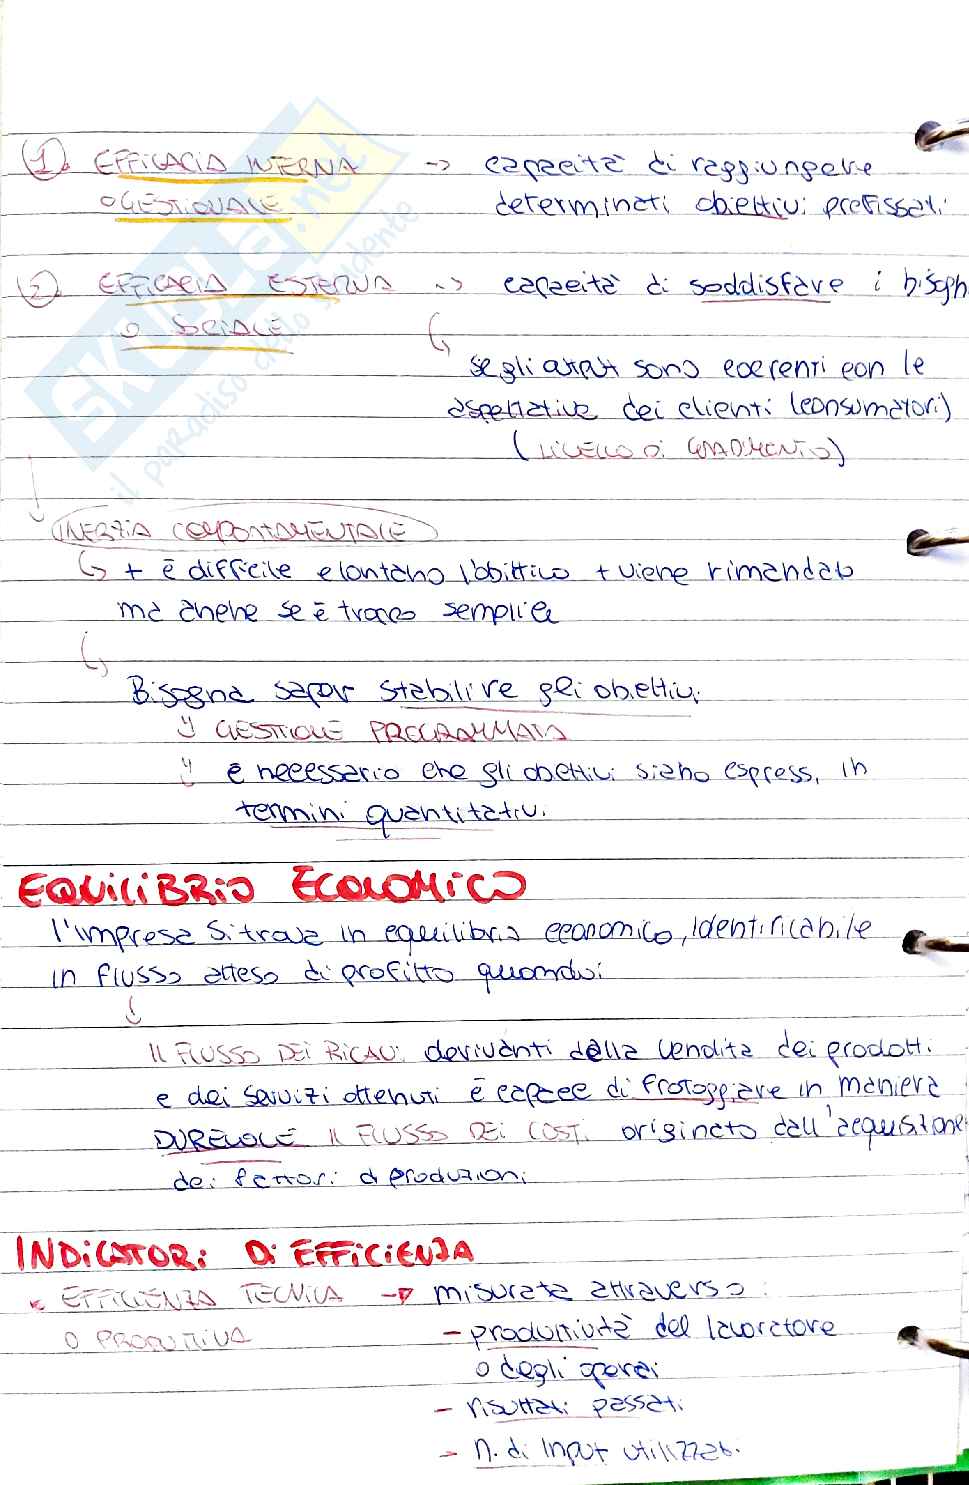 1. EFFICACIA INTERNA → capacità di raggiungere
O GESTIONALE determinati obiettivi prefissati
2. EFFICACIA ESTERNA → capacità di soddisfare i bisogn
O SOCIALE
se gli output sono coerenti con le
aspettative dei clienti (consumatori)
(LIVELLO DI GRADIMENTO)
SKUOLA.net
il paradiso dello studente
INERZIA COMPORTAMENTALE
+ è difficile e lontano l'obiettivo + viene rimandato
ma anche se è troppo semplice
Bisogna saper stabilire gli obiettivi
GESTIONE PROGRAMMATA
è necessario che gli obiettivi siano espressi in
termini quantitativi
EQUILIBRIO ECONOMICO
l'impresa si trova in equilibrio economico, identificabile
in flusso atteso di profitto quando:
IL FLUSSO DEI RICAVI derivanti della vendita dei prodotti
e dei servizi ottenuti è capace di froteggiare in maniera
DUREVOLE IL FLUSSO DEI COSTI originato dall'acquisizione
dei fattori di produzioni
INDICATORI DI EFFICIENZA
EFFICIENZA TECNICA → misurata attraverso:
O PRODUTTIVA - produttività del lavoratore
o degli operai
- risultati passati
- n. di input utilizzati